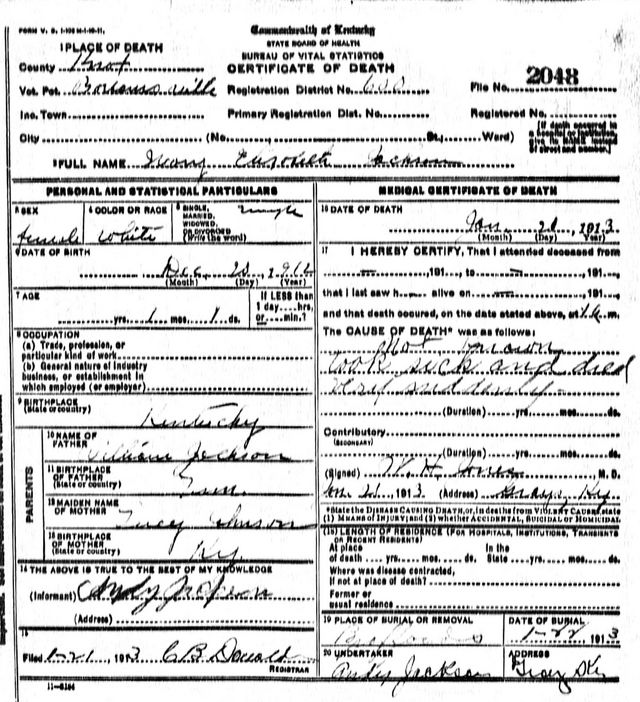 Commonwealth of Kentucky
STATE BOARD OF HEALTH
BUREAU OF VITAL STATISTICS
CERTIFICATE OF DEATH
1 PLACE OF DEATH
County Knox
Vot. Pct. Registration District No. 600 File No. 2048
Inc. Town Primary Registration Dist. No. Registered No.
City (No. St., Ward) [If death occurred in a hospital or institution, give its NAME instead of street and number.]
2 FULL NAME Jackson
PERSONAL AND STATISTICAL PARTICULARS
3 SEX female
4 COLOR OR RACE White
5 SINGLE, MARRIED, WIDOWED, OR DIVORCED (Write the word) single
6 DATE OF BIRTH
Dec 20, 1912
(Month) (Day) (Year)
7 AGE
yrs. 1 mos. 1 ds.
If LESS than 1 day....hrs. or....min.?
8 OCCUPATION
(a) Trade, profession, or particular kind of work
(b) General nature of industry business, or establishment in which employed (or employer)
9 BIRTHPLACE
(State or country) Kentucky
PARENTS
10 NAME OF FATHER William Jackson
11 BIRTHPLACE OF FATHER (State or country) Tenn.
12 MAIDEN NAME OF MOTHER Johnson
13 BIRTHPLACE OF MOTHER (State or country) Ky
14 THE ABOVE IS TRUE TO THE BEST OF MY KNOWLEDGE
(Informant) Andy Jackson
(Address)
15
Filed 1-21, 1913 C B Donald
REGISTRAR
11-6184
MEDICAL CERTIFICATE OF DEATH
16 DATE OF DEATH
Jan. 21, 1913
(Month) (Day) (Year)
17 I HEREBY CERTIFY, That I attended deceased from
—, 191...., to —, 191....,
that I last saw h.... alive on —, 191....,
and that death occured, on the date stated above, at m.
The CAUSE OF DEATH* was as follows:
Not Known
took sick and died
very suddenly
(Duration) yrs. mos. ds.
Contributory
(SECONDARY)
(Duration) yrs. mos. ds.
(Signed) W. H. Jones M. D.
Jan 21, 1913 (Address) Grays Ky
*State the DISEASE CAUSING DEATH, or, in deaths from VIOLENT CAUSES, state (1) MEANS OF INJURY; and (2) whether ACCIDENTAL, SUICIDAL or HOMICIDAL
18) LENGTH OF RESIDENCE (FOR HOSPITALS, INSTITUTIONS, TRANSIENTS OR RECENT RESIDENTS)
At place of death yrs. mos. ds. In the State yrs. mos. ds.
Where was disease contracted, If not at place of death?
Former or usual residence
19 PLACE OF BURIAL OR REMOVAL
DATE OF BURIAL
1-22, 1913
20 UNDERTAKER
Andy Jackson
ADDRESS
Ky